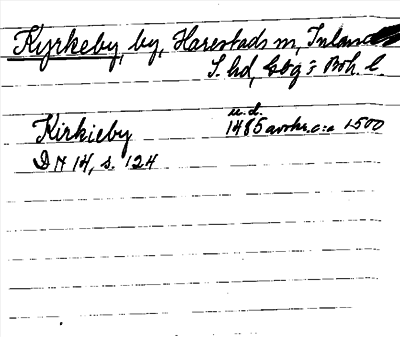 Kyrkeby, by, Harestads sn, Inlands
S. hd, Gbg o Boh. l.
u.d.
Kirkieby 1485 avskr. c:a 1500
DN 14, s. 124